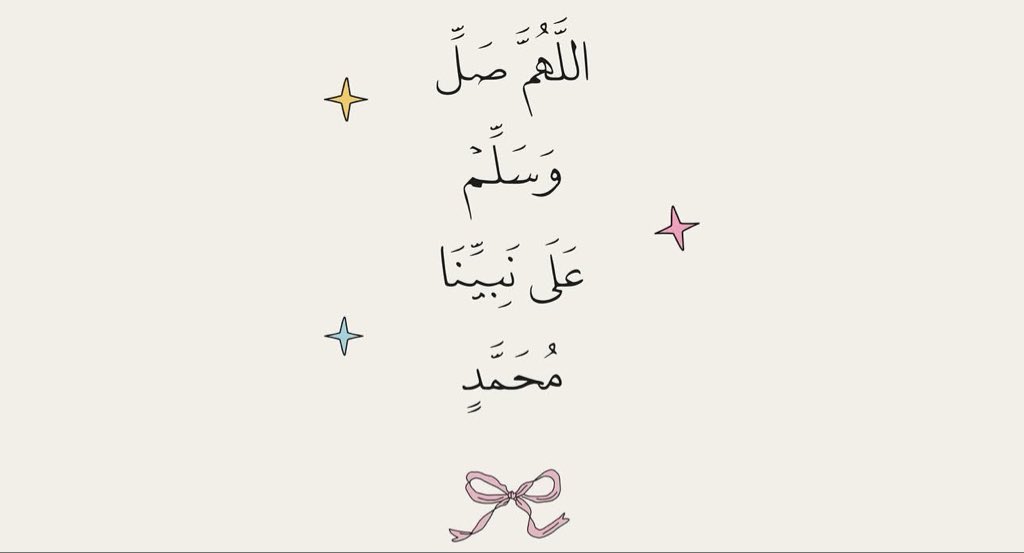 اللَّهُمَّ صَلِّ
وَسَلِّمْ
عَلَى نَبِيِّنَا
مُحَمَّدٍ